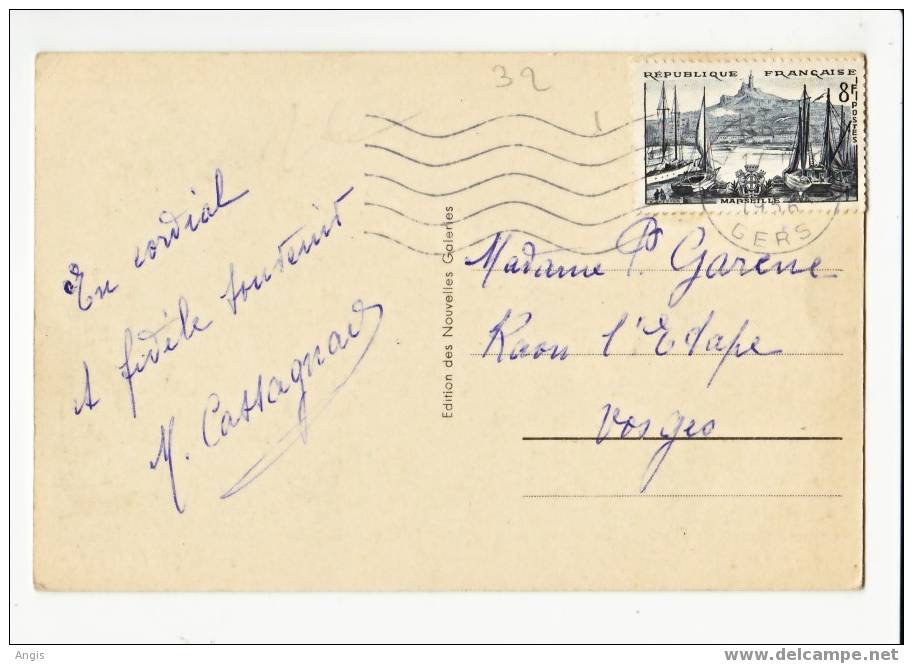 32
RÉPUBLIQUE FRANÇAISE
8F
POSTES
MARSEILLE
GERS
En cordial
et fidèle souvenir
M. Cassagnard
Edition des Nouvelles Galeries
Madame P. Garène
Raon l'Etape
Vosges
Angis
www.delcampe.net